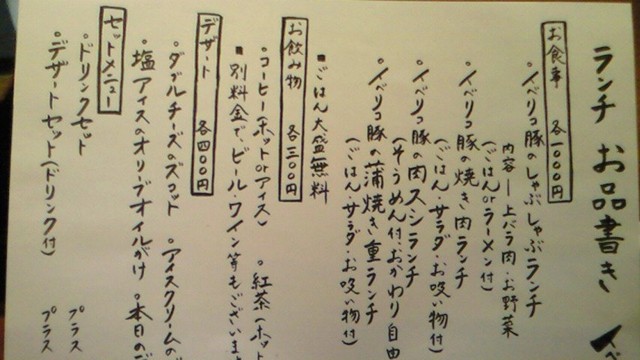 ランチ お品書き イベ
お食事 各一〇〇〇円
。イベリコ豚のしゃぶしゃぶランチ
内容―上バラ肉・お野菜
(ごはんorラーメン付)
。イベリコ豚の焼き肉ランチ
(ごはん・サラダ・お吸い物付)
。イベリコ豚の肉スシランチ
(そうめん付、おかわり自由
。イベリコ豚の蒲焼き重ランチ
(ごはん・サラダ・お吸い物付)
■ごはん大盛無料
お飲み物 各三〇〇円
。コーヒー(ホットorアイス) 。紅茶(ホット
■別料金で、ビール・ワイン等もございま
デザート 各四〇〇円
。ダブルチーズのズコット 。アイスクリームの
。塩アイスのオリーブオイルがけ 。本日の
セットメニュー
。ドリンクセット プラス
。デザートセット(ドリンク付) プラス